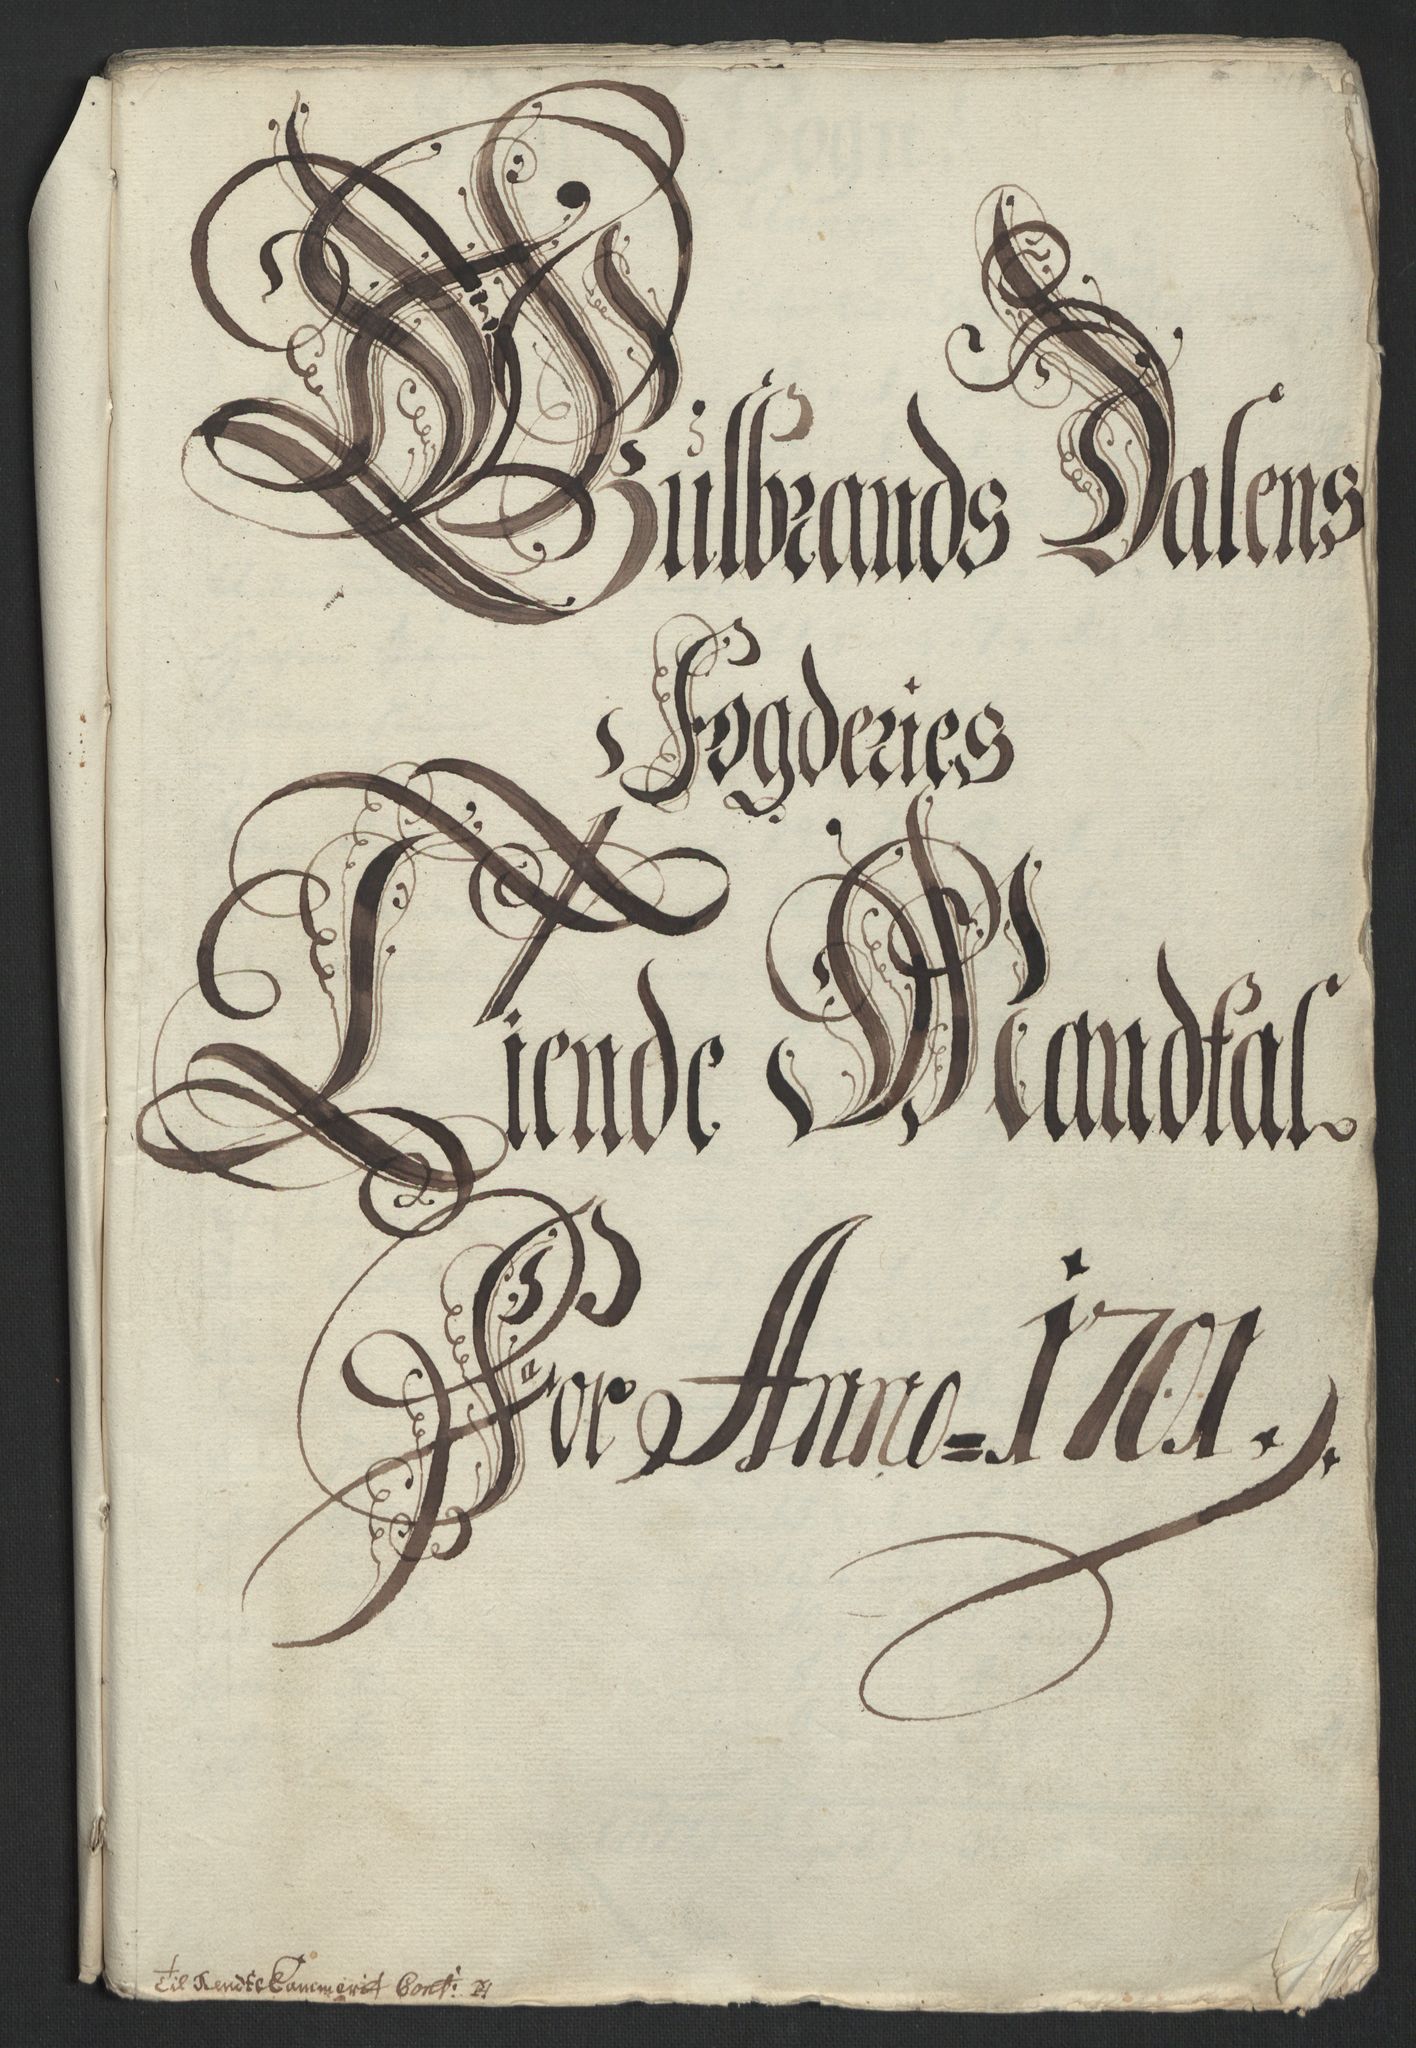 Gulbrands Dalens
Fogderies
Tiende Mandtal
For Anno = 1701.
Til Rendte Cammerit